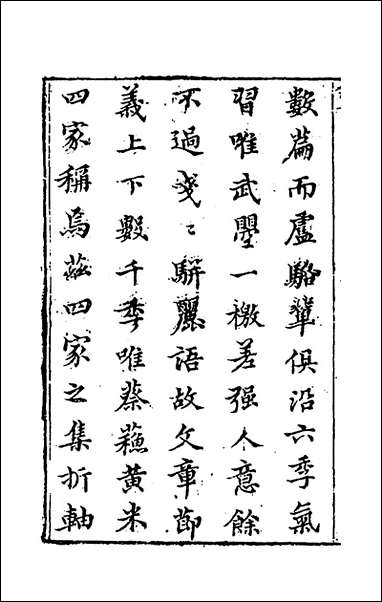 數篇而盧駱輩俱沿六季氣
習唯武曌一檄差强人意餘
不過戔〻駢麗語故文章節
義上下數千季唯蔡蘓黄米
四家稱焉茲四家之集折軸